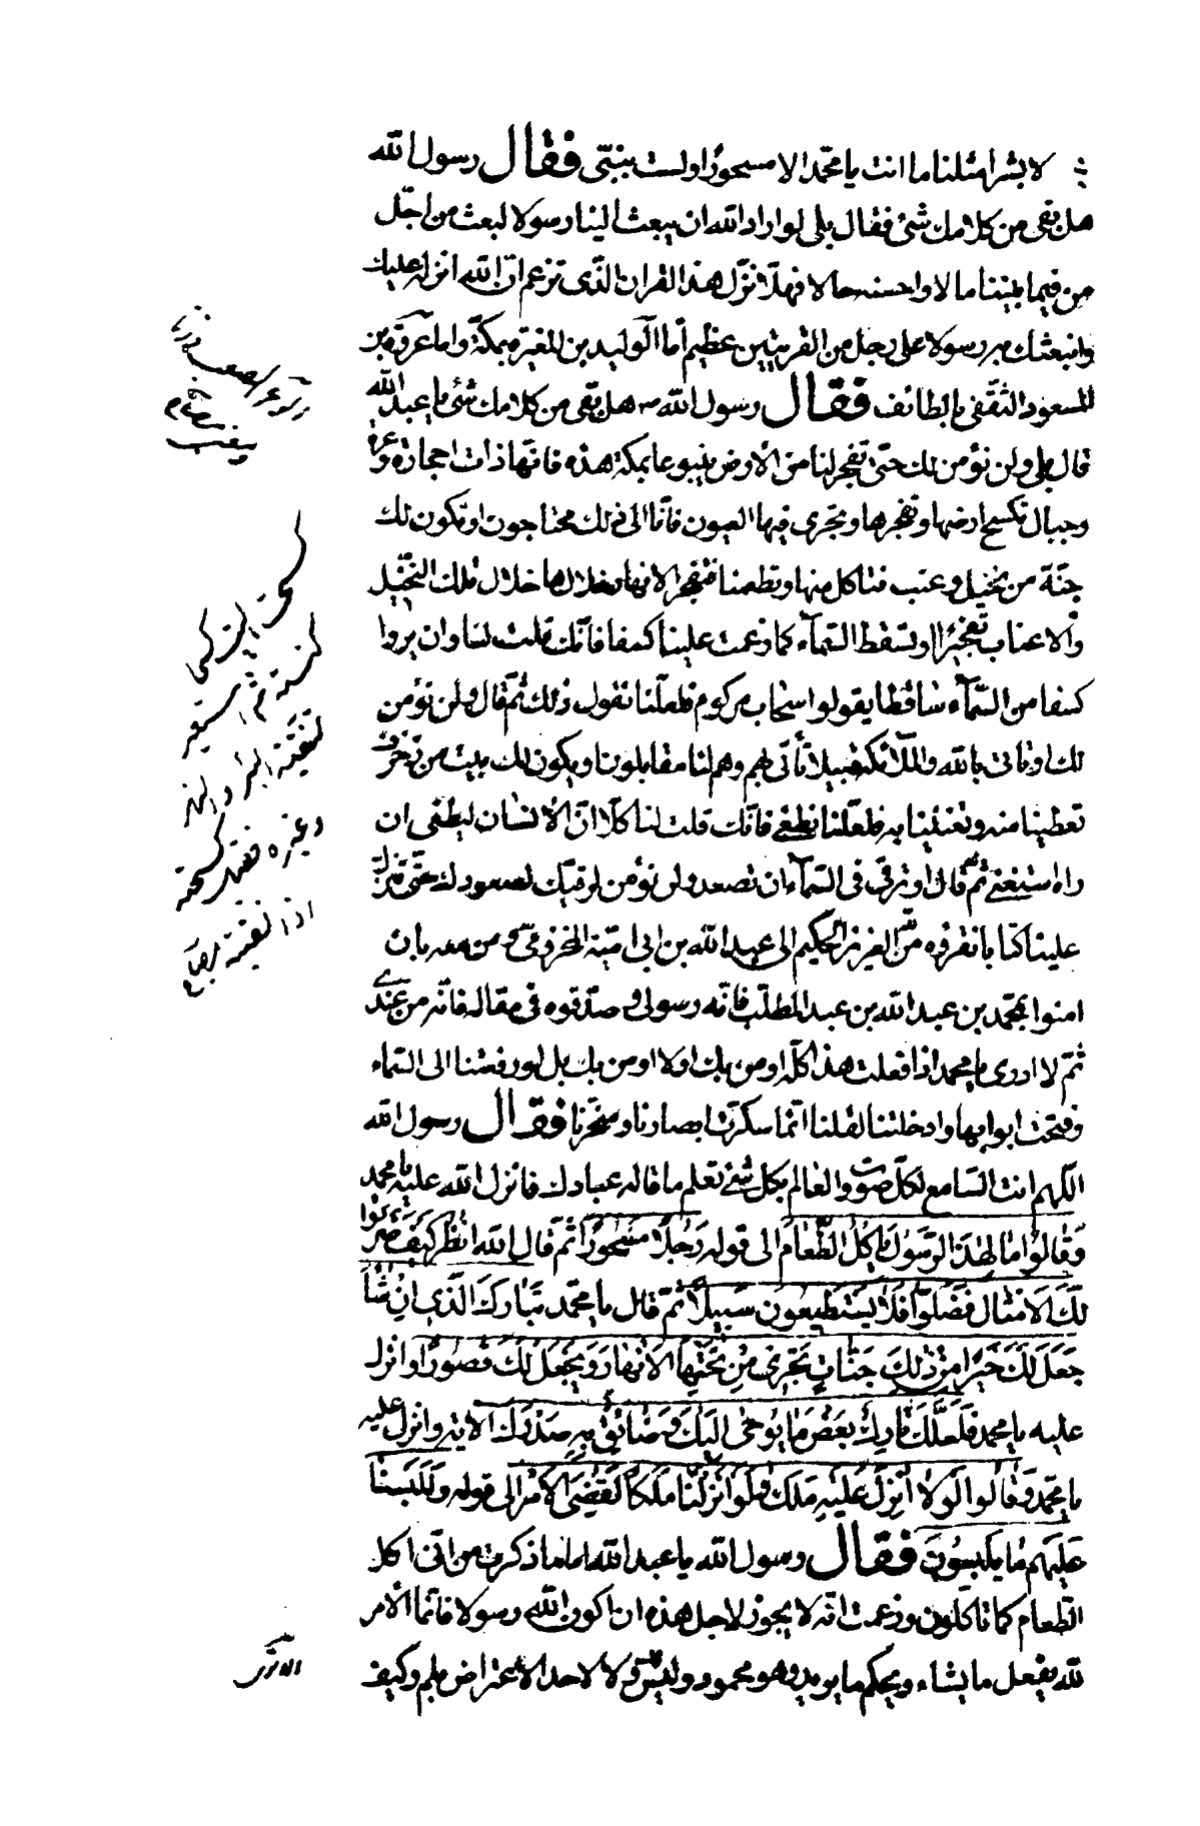 لا بشرا مثلنا ما انت يا محمّد الا مسحورًا ولست بنبّى فقال رسول الله
هل بقى من كلامك شئ فقال بلى لو اراد الله ان يبعث الينا رسولا لبعث من اجلّ
من فيما بيننا مالا واحسنه حالا فهلّا نزّل هذا القران الذّى تزعم انّ الله انزله عليك
وانبعثك به رسولا على رجل من القريتين عظيم امّا الوليد بن المغيرة بمكّة واما عروة بن
المسعود الثقفى بالطائف فقال رسول الله ص هل بقى من كلامك شئ يا عبد الله
قال بلى ولن نؤمن لك حتّى تفجر لنا من الأرض ينبوعا بمكة هذه فانّها ذات احجارة وعرة
وجبال تكسح ارضها وتحفرها وتجرى فيها العيون فانّا الى ذلك محتاجون او تكون لك
جنّة من نخيل وعنب فتاكل منها وتطعمنا فتفجر الانهار خلالها خلال تلك النخّيل
والاعناب تفجيرًا او تسقط السّمآء كما زعمت علينا كسفا فانّك قلت لنا وان يروا
كسفا من السّمآء ساقطا يقولوا سحاب مركوم فلعلّنا نقول ذلك ثمّ قال ولن نؤمن
لك او تاتى بالله والملائكة قبيلا تأتى بهم وهم لنا مقابلون او يكون لك بيت من زخرف
تعطينا منه وتغنينا به فلعلّنا نطغى فانّك قلت لنا كلّا انّ الأنسان ليطغى ان
راه استغنى ثم قال او ترقى فى السّمآء ان تصعد ولن نؤمن لرقيّك لصعودك حتّى تنزّل
علينا كتابا نقرؤه من الله العزيز الحكيم الى عبد الله بن ابى اميّة المخزومى ومن معه بان
امنوا بمحمّد بن عبد الله بن عبد المطلّب فانّه رسولى وصدّقوه فى مقاله فانّه من عندى
ثمّ لا ادرى يا محمد اذا فعلت هذا كلّه اومن بك اولا اومن بك بل لو رفعتنا الى السّماء
وفتحت ابوابها وادخلتنا لقلنا انّما سكرت ابصارنا وسحرتنا فقال رسول الله
اللهم انت السّامع لكلّ صوت والعالم بكل شئ تعلم ما قاله عبادك فانزل الله عليه يا محمد
وَقَالُوا مَا لِهٰذَا الرَّسُولِ يَاكُلُ الطَّعَامَ الى قوله رَجُلًا مَسْحُورًا ثمّ قال الله اُنْظُر كَيْفَ ضَرَبُوا
لَكَ الاَمْثَالَ فَضَلّوا فَلَا يَسْتَطِيعُونَ سَبِيلًا ثمّ قال يا محمّد تَبَارَكَ الَّذِى اِنْ شَاۤءَ
جَعَلَ لَكَ خَيْرًا مِنْ ذٰلِكَ جَنَّاتٍ تَجْرِى مِنْ تَحْتِهَا الاَنْهَارُ وَيَجْعَلْ لَكَ قُصُورًا وانزل
عليه يا محمد فَلَعَلَّكَ تَارِكٌ بَعْضَ مَا يُوحٰى اِلَيْكَ وَضَائِقٌ بِهِ صَدْرُكَ الاية وانزل عليه
يا محمّد وَقَالُوا لَوْلَا اُنْزِلَ عَلَيْهِ مَلَكٌ وَلَوْ اَنْزَلْنَا مَلَكًا لَقُضِىَ الاَمْرُ الى قوله وَلَلَبَسْنَا
عَلَيْهِمْ مَا يَلْبِسُونَ فقال رسول الله يا عبد الله اما ما ذكرت من انّى اكل
الطّعام كما تاكلون وزعمت انّه لا يجوز لاجل هذه ان اكون لله رسولا فانّما الأمر
لله يفعل ما يشاء ويحكم ما يريد وهو محمود وليس لك ولا لاحد الأعتراض بلم وكيف